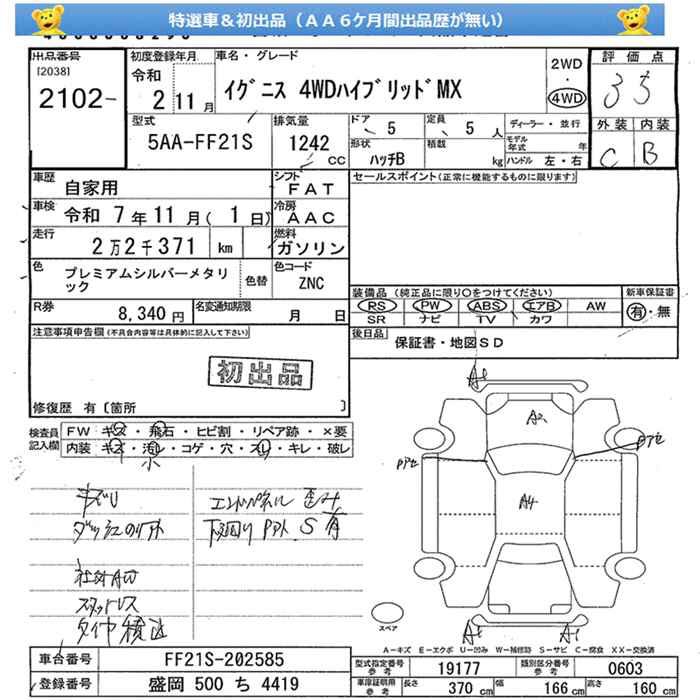 特選車＆初出品（ＡＡ６ケ月間出品歴が無い）
出品番号 [2038] 2102-
初度登録年月 令和 2 11月
車名・グレード イグニス 4WDハイブリッドMX
2WD・4WD
評価点 3.5
外装 内装
C B
型式 5AA-FF21S
排気量 1242 CC
ドア 5 定員 5 人
形状 ハッチB 積載 kg
ディーラー・並行
モデル年式 年
ハンドル 左・右
車歴 自家用
シフト FAT
セールスポイント(正常に機能するものに限ります)
車検 令和 7年11月(1日)
冷房 AAC
走行 2万2千371 km
燃料 ガソリン
色 プレミアムシルバーメタリック
色替
色コード ZNC
R券 8,340円
名変通知期限 月 日
装備品(純正品に限り○をつけてください)
RS PW ABS エアB AW
SR ナビ TV カワ
新車保証書 有・無
後日品 保証書・地図SD
注意事項申告欄(不具合内容等は具体的に記入して下さい)
初出品
修復歴 有〔箇所 〕
検査員記入欄
FW キズ・飛石・ヒビ割・リペア跡・×要
内装 キズ・汚レ・コゲ・穴・スレ・キレ・破レ
小
キズU
社外AW
スタッドレス
タイヤ積込
エンドパネル歪み
下回り S有
A1
A2
A4
A1 A1
スペア
A-キズ E-エクボ U-凹み W-補修跡 S-サビ C-腐食 XX-交換済
車台番号 FF21S-202585
登録番号 盛岡 500 ち 4419
型式指定番号 参考 19177 類別区分番号 参考 0603
車庫証明用 参考 長さ 370 cm 幅 166 cm 高さ 160 cm